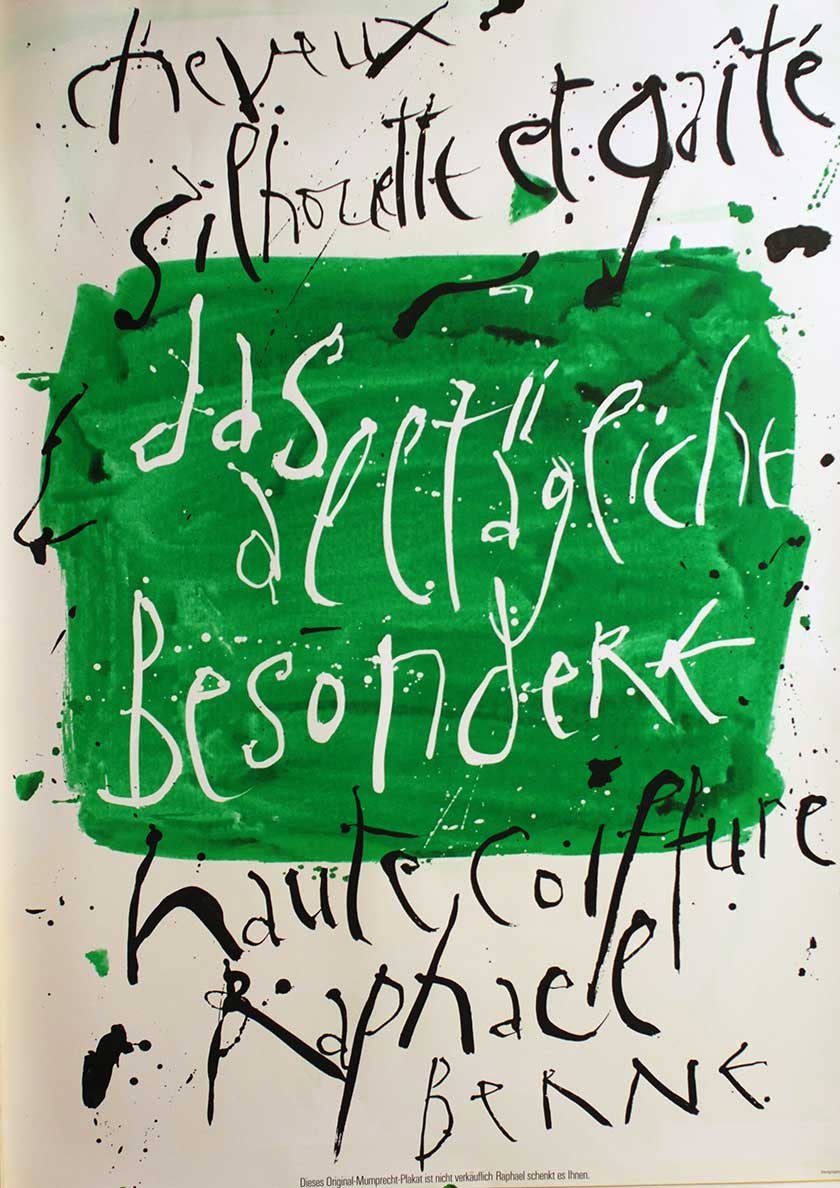 cheveux
silhouette et gaîté
das
alltägliche
BesondeRE
haute coiffure
Raphael
BeRNE
Dieses Original-Mumprecht-Plakat ist nicht verkäuflich Raphael schenkt es Ihnen.